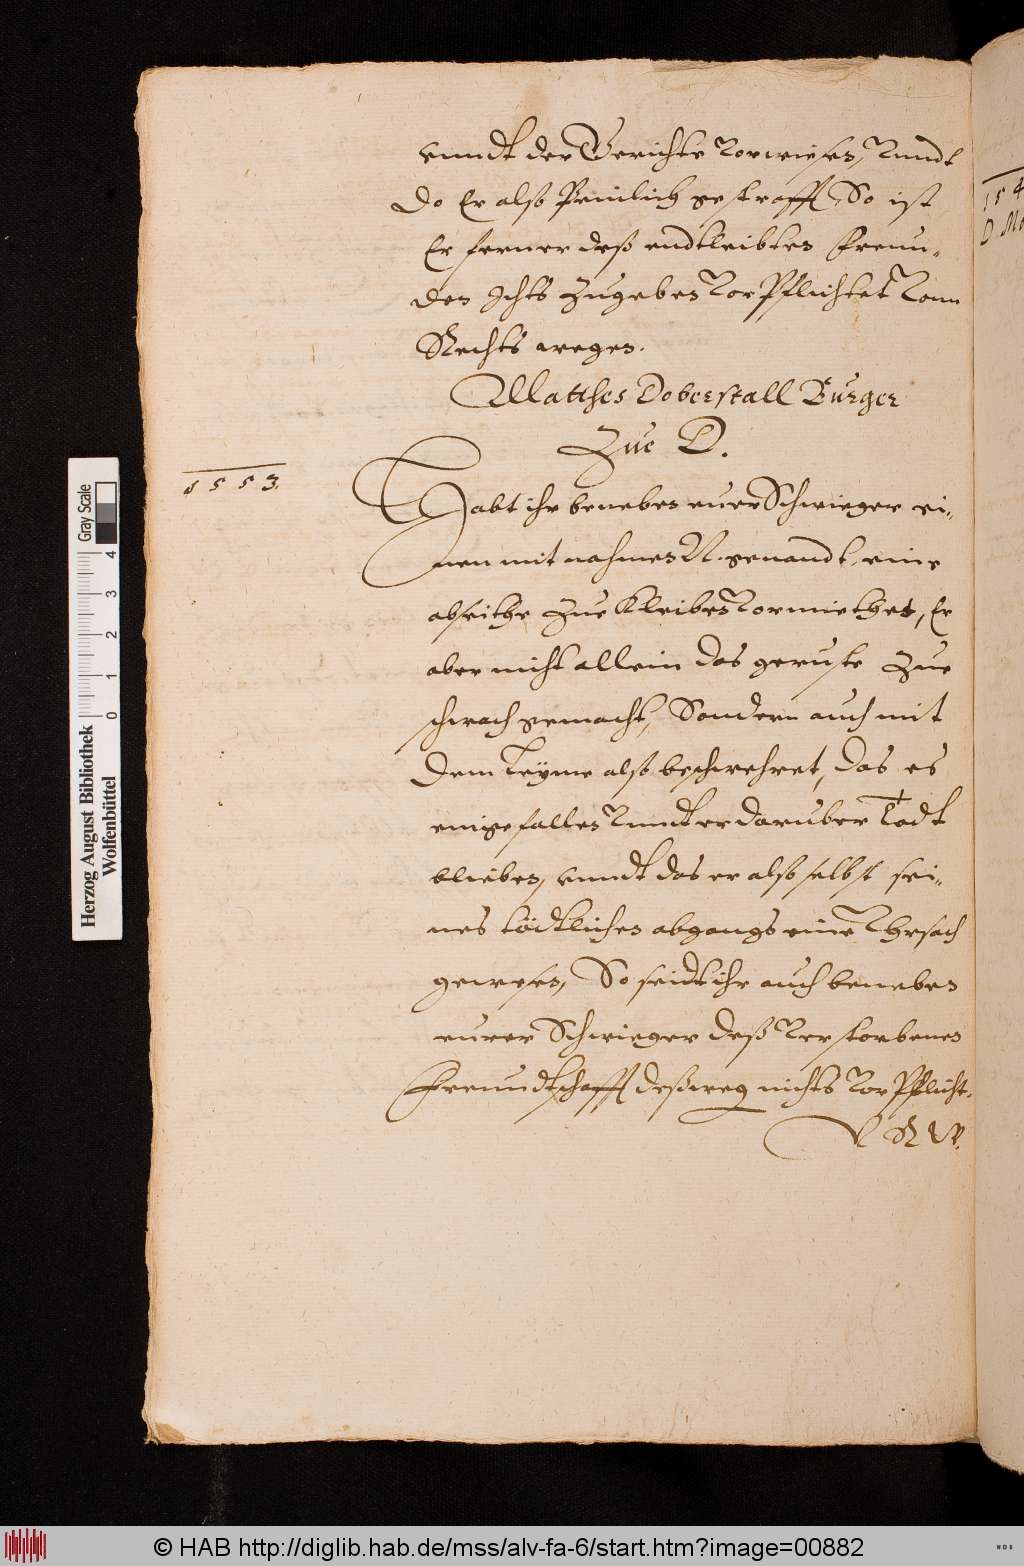 vnndt der Gerichte vorwiesen, vnndt
do Er also Peinlich gestrafft, So ist
Er ferner deß endtleibten Freun-
den Ichts zugeben vorPflichtet Vonn
Rechts wegen.
Matthes Doberstall Burger
Zue D.
1553.
Habt ihr beneben euer Schwieger ei-
nen mit nahmen N. genandt, eine
abseithe Zue Kleiben vormiethet, Er
aber nicht allein das geruste Zue
schwach gemacht, Sondern auch mit
dem Leÿme also beschwehret, das es
eingefallen vnndt er daruber Todt
blieben, vnndt das er also selbst sei-
nes tödtlichen abgangs eine Vhrsach
gewesen, So seidt ihr auch beneben
eurer Schwieger deß verstorbenen
Freundtschafft deßweg nichts vorPflicht.
V R W.
154
D Mo
Herzog August Bibliothek
Wolfenbüttel
Gray Scale
0 1 2 3 4
© HAB http://diglib.hab.de/mss/alv-fa-6/start.htm?image=00882